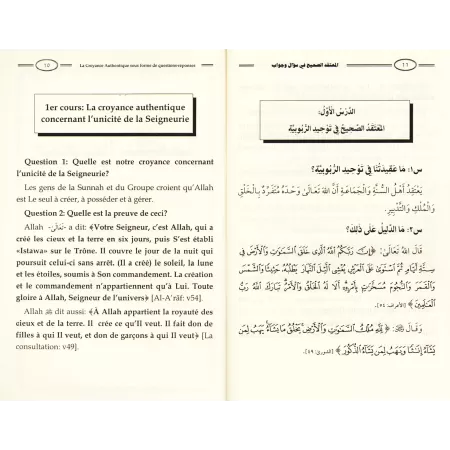 10
La Croyance Authentique sous forme de questions-réponses
1er cours: La croyance authentique
concernant l'unicité de la Seigneurie
Question 1: Quelle est notre croyance concernant
l'unicité de la Seigneurie?
Les gens de la Sunnah et du Groupe croient qu'Allah
est Le seul à créer, à posséder et à gérer.
Question 2: Quelle est la preuve de ceci?
Allah -تعالى- a dit: «Votre Seigneur, c'est Allah, qui a
créé les cieux et la terre en six jours, puis S'est établi
«Istawa» sur le Trône. Il couvre le jour de la nuit qui
poursuit celui-ci sans arrêt. (Il a créé) le soleil, la lune
et les étoiles, soumis à Son commandement. La création
et le commandement n'appartiennent qu'à Lui. Toute
gloire à Allah, Seigneur de l'univers» [Al-A'râf: v54].
Allah ﷻ dit aussi: «À Allah appartient la royauté des
cieux et de la terre. Il crée ce qu'Il veut. Il fait don de
filles à qui Il veut, et don de garçons à qui Il veut» [La
consultation: v49].
المعتقد الصحيح في سؤال وجواب
١١
الدَّرْسُ الأَوَّلُ:
المُعْتَقَدُ الصَّحِيحُ فِي تَوْحِيدِ الرُّبُوبِيَّةِ
س١: مَا عَقِيدَتُنَا فِي تَوْحِيدِ الرُّبُوبِيَّةِ؟
يَعْتَقِدُ أَهْلُ السُّنَّةِ وَالجَمَاعَةِ أَنَّ اللهَ تَعَالَى وَحْدَهُ مُتَفَرِّدٌ بِالخَلْقِ
وَالمُلْكِ وَالتَّدْبِيرِ.
س٢: مَا الدَّلِيلُ عَلَى ذَلِكَ؟
قَالَ اللهُ تَعَالَى: ﴿إِنَّ رَبَّكُمُ اللَّهُ الَّذِي خَلَقَ السَّمَاوَاتِ وَالْأَرْضَ فِي
سِتَّةِ أَيَّامٍ ثُمَّ اسْتَوَى عَلَى الْعَرْشِ يُغْشِي اللَّيْلَ النَّهَارَ يَطْلُبُهُ حَثِيثًا وَالشَّمْسَ
وَالْقَمَرَ وَالنُّجُومَ مُسَخَّرَاتٍ بِأَمْرِهِ أَلَا لَهُ الْخَلْقُ وَالْأَمْرُ تَبَارَكَ اللَّهُ رَبُّ
الْعَالَمِينَ﴾ [الأعراف: ٥٤].
وَقَالَ ﷻ: ﴿لِلَّهِ مُلْكُ السَّمَاوَاتِ وَالْأَرْضِ يَخْلُقُ مَا يَشَاءُ يَهَبُ لِمَن
يَشَاءُ إِنَاثًا وَيَهَبُ لِمَن يَشَاءُ الذُّكُورَ﴾ [الشورى: ٤٩].